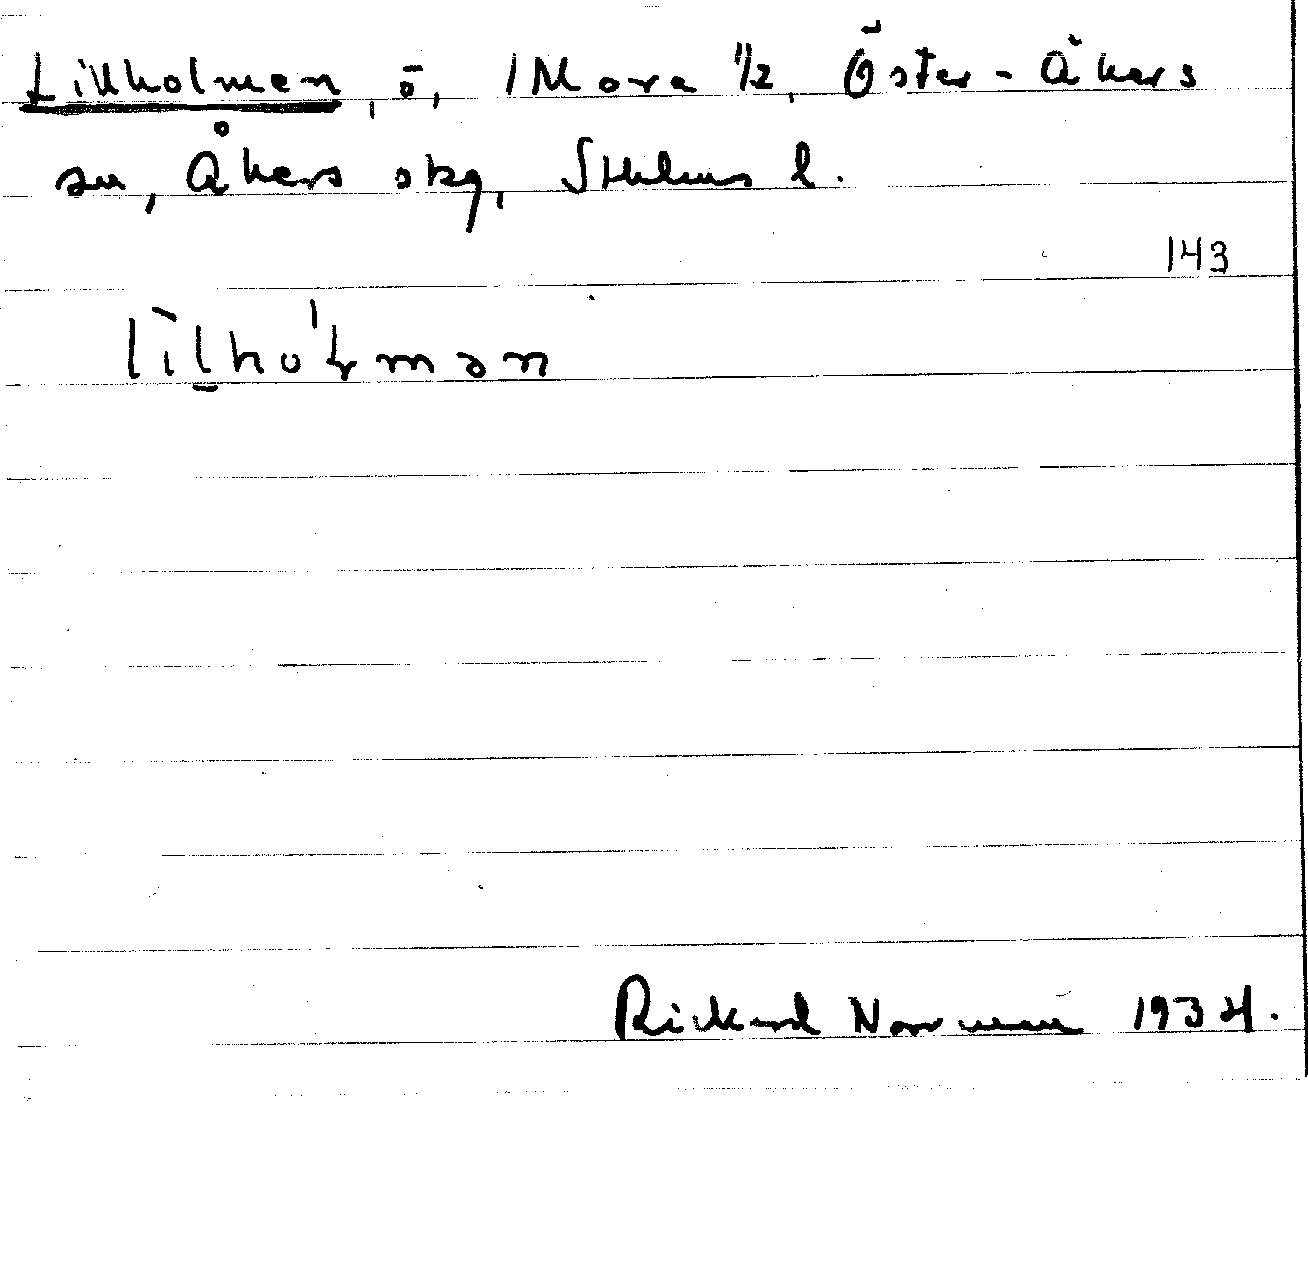 Lillholmen, ö, 1 Mora 1/2, Öster-Åkers
sn, Åkers skg, Sthlms l.
143
Rickard Norman 1934.